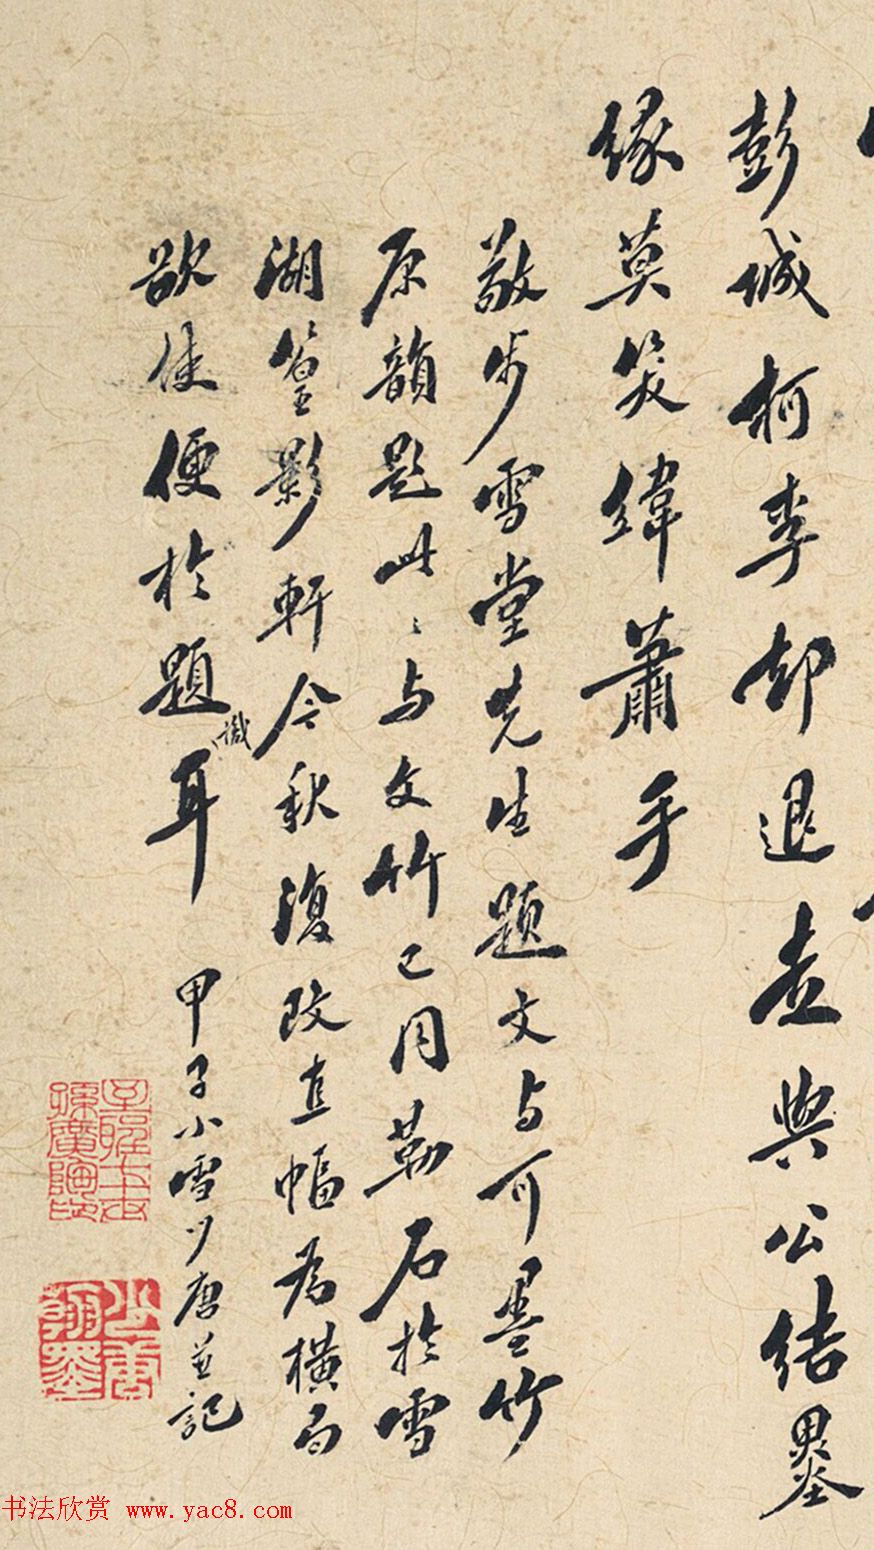 彭城柯李却退走與公結墨
緣莫笑緯蕭手
敬步雪堂先生題文与可墨竹
原韻題此〻与文竹已同勒石於雪
湖篁影軒今秋復改直幅為橫局
欲使便於題識耳
甲子小雪少唐並記
孫廣陶印
少唐翰墨
书法欣赏 www.yac8.com